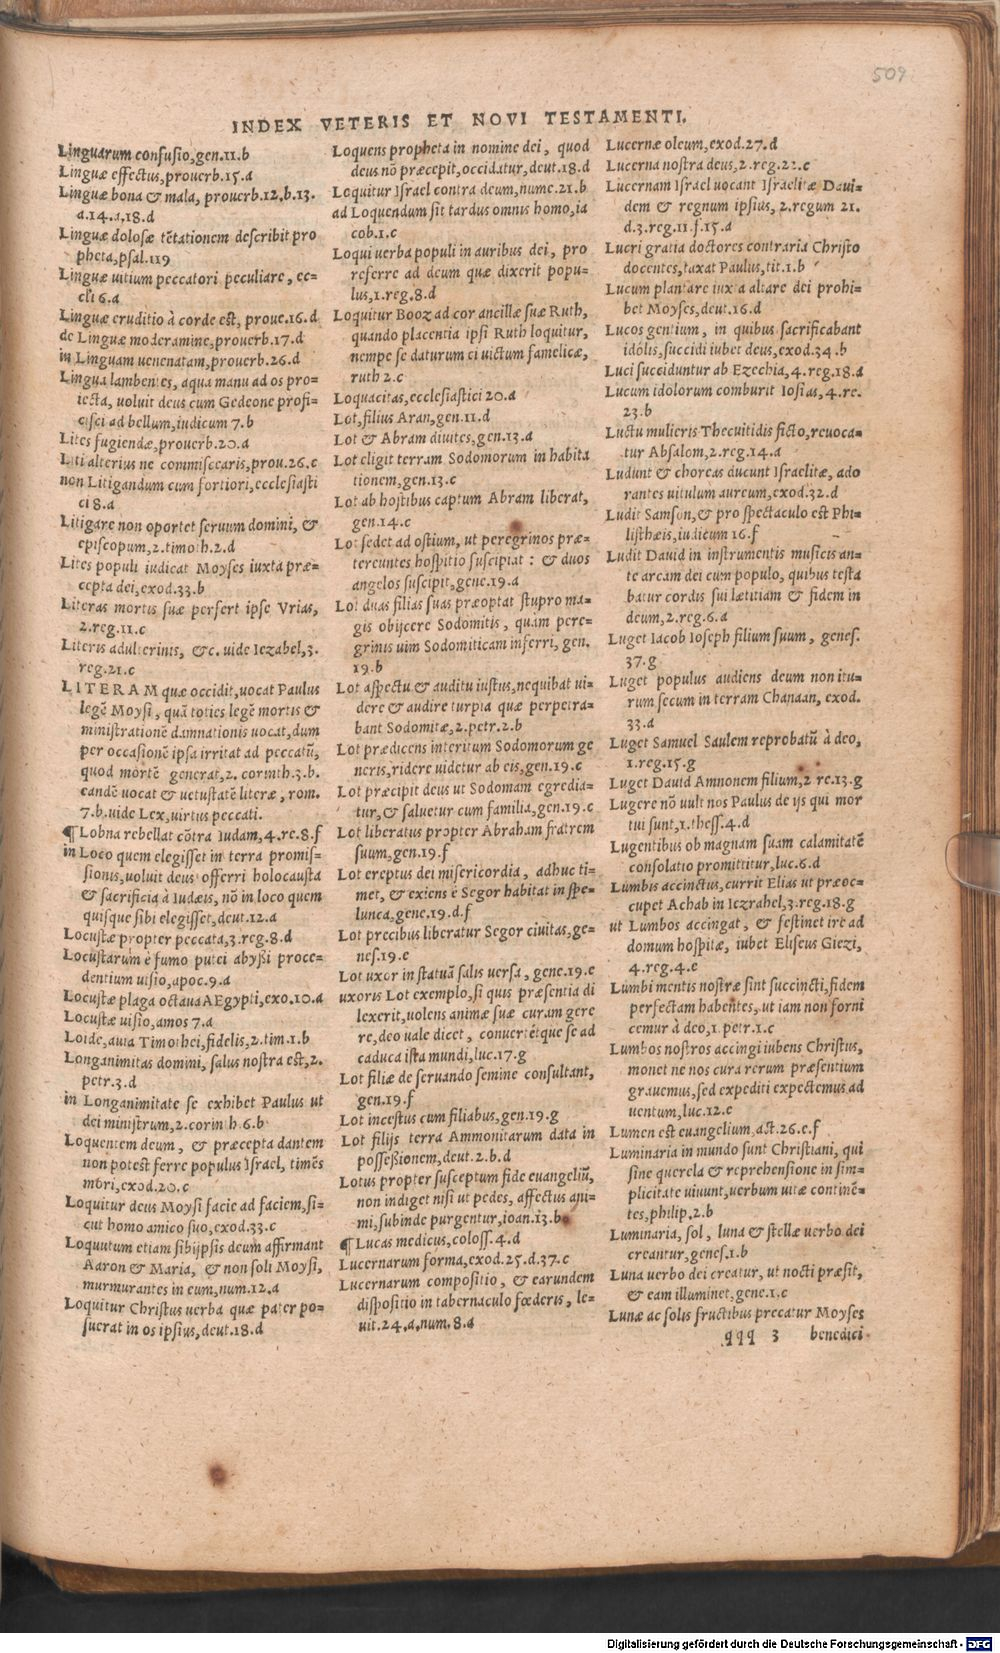 509
INDEX VETERIS ET NOVI TESTAMENTI.
Linguarum confusio,gen.11.b
Linguæ effectus,prouerb.15.a
Linguæ bona & mala, prouerb.12.b.13.
a.14.a,18.d
Linguæ dolosæ tētationem describit pro
pheta,psal.119
Linguæ uitium peccatori peculiare, ec=
cli 6.a
Linguæ eruditio à corde est, proue.16.d
de Linguæ moderamine,prouerb.17.d
in Linguam uenenatam,prouerb.26.d
Lingua lambentes, aqua manu ad os pro=
iecta, uoluit deus cum Gedeone profi=
cisci ad bellum,iudicum 7.b
Lites fugiendæ,prouerb.20.a
Liti alterius ne commiscearis,prou.26.c
non Litigandum cum fortiori,ecclesiasti
ci 8.a
Litigare non oportet seruum domini, &
episcopum,2.timoth.2.d
Lites populi iudicat Moyses iuxta præ=
cepta dei,exod.33.b
Literas mortis suæ perfert ipse Vrias,
2.reg.11.c
Literis adulterinis, &c. uide Iezabel,3.
reg.21.c
LITERAM quæ occidit,uocat Paulus
legē Moysi, quā toties legē mortis &
ministrationē damnationis uocat,dum
per occasionē ipsa irritat ad peccatū,
quod mortē generat,2. corinth.3.b.
eandē uocat & uetustatē literæ, rom.
7.b.uide Lex,uirtus peccati.
¶ Lobna rebellat cōtra Iudam,4.re.8.f
in Loco quem elegisset in terra promis=
sionis,uoluit deus offerri holocausta
& sacrificia à Iudæis, nō in loco quem
quisque sibi elegisset,deut.12.a
Locustæ propter peccata,3.reg.8.d
Locustarum è fumo putei abyßi proce=
dentium uisio,apoc.9.a
Locustæ plaga octaua AEgypti,exo.10.a
Locustæ uisio,amos 7.a
Loide,auia Timothei,fidelis,2.tim.1.b
Longanimitas domini, salus nostra est,2.
petr.3.d
in Longanimitate se exhibet Paulus ut
dei ministrum,2.corinth.6.b
Loquentem deum, & præcepta dantem
non potest ferre populus Israel, timēs
mori,exod.20.c
Loquitur deus Moysi facie ad faciem,si=
cut homo amico suo,exod.33.c
Loquutum etiam sibijpsis deum affirmant
Aaron & Maria, & non soli Moysi,
murmurantes in eum,num.12.a
Loquitur Christus uerba quæ pater po=
suerat in os ipsius,deut.18.d
Loquens propheta in nomine dei, quod
deus nō præcepit,occidatur,deut.18.d
Loquitur Israel contra deum,nume.21.b
ad Loquendum sit tardus omnis homo,ia
cob.1.c
Loqui uerba populi in auribus dei, pro
referre ad deum quæ dixerit popu=
lus,1.reg.8.d
Loquitur Booz ad cor ancillæ suæ Ruth,
quando placentia ipsi Ruth loquitur,
nempe se daturum ei uictum famelicæ,
ruth 2.c
Loquacitas,ecclesiastici 20.a
Lot,filius Aran,gen.11.d
Lot & Abram diuites,gen.13.a
Lot eligit terram Sodomorum in habita
tionem,gen.13.c
Lot ab hostibus captum Abram liberat,
gen.14.c
Lot sedet ad ostium, ut peregrinos præ=
tereuntes hospitio suscipiat : & duos
angelos suscipit,gene.19.a
Lot duas filias suas præoptat stupro ma=
gis obijcere Sodomitis, quàm pere=
grinis uim Sodomiticam inferri, gen.
19.b
Lot aspectu & auditu iustus,nequibat ui=
dere & audire turpia quæ perpetra=
bant Sodomitæ,2.petr.2.b
Lot prædicens interitum Sodomorum ge
neris,ridere uidetur ab eis,gen.19.c
Lot præcipit deus ut Sodomam egredia=
tur,& saluetur cum familia,gen.19.c
Lot liberatus propter Abraham fratrem
suum,gen.19.f
Lot ereptus dei misericordia, adhuc ti=
met, & exiens è Segor habitat in spe=
lunca,gene.19.d.f
Lot precibus liberatur Segor ciuitas,ge=
nes.19.e
Lot uxor in statuā salis uersa, gene.19.e
uxoris Lot exemplo,si quis præsentia di
lexerit,uolens animæ suæ curam gere
re,deo uale dicet, conuertetque se ad
caduca ista mundi,luc.17.g
Lot filiæ de seruando semine consultant,
gen.19.f
Lot incestus cum filiabus,gen.19.g
Lot filijs terra Ammonitarum data in
posseßionem,deut.2.b.d
Lotus propter susceptum fide euangeliū,
non indiget nisi ut pedes, affectus ani=
mi,subinde purgentur,ioan.13.b
¶ Lucas medicus,coloss.4.d
Lucernarum forma,exod.25.d.37.c
Lucernarum compositio, & earundem
dispositio in tabernaculo fœderis, le=
uit.24.a,num.8.a
Lucernæ oleum,exod.27.d
Lucerna nostra deus,2.reg.22.c
Lucernam Israel uocant Israelitæ Daui=
dem & regnum ipsius, 2.regum 21.
d.3.reg.11.f.15.a
Lucri gratia doctores contraria Christo
docentes,taxat Paulus,tit.1.b
Lucum plantare iuxta altare dei prohi=
bet Moyses,deut.16.d
Lucos gentium, in quibus sacrificabant
idolis,succidi iubet deus,exod.34.b
Luci succiduntur ab Ezechia,4.reg.18.a
Lucum idolorum comburit Iosias,4.re.
23.b
Luctu mulieris Thecuitidis ficto,reuoca=
tur Absalom,2.reg.14.a
Ludunt & choreas ducunt Israelitæ, ado
rantes uitulum aureum,exod.32.d
Ludit Samson,& pro spectaculo est Phi=
listhæis,iudicum 16.f
Ludit Dauid in instrumentis musicis an=
te arcam dei cum populo, quibus testa
batur cordis sui lætitiam & fidem in
deum,2.reg.6.a
Luget Iacob Ioseph filium suum, genes.
37.g
Luget populus audiens deum non itu=
rum secum in terram Chanaan, exod.
33.a
Luget Samuel Saulem reprobatū à deo,
1.reg.15.g
Luget Dauid Amnonem filium,2 re.13.g
Lugere nō uult nos Paulus de ijs qui mor
tui sunt,1.thess.4.d
Lugentibus ob magnam suam calamitatē
consolatio promittitur,luc.6.d
Lumbis accinctus,currit Elias ut præoc=
cupet Achab in Iezrahel,3.reg.18.g
ut Lumbos accingat, & festinet ire ad
domum hospitæ, iubet Eliseus Giezi,
4.reg.4.e
Lumbi mentis nostræ sint succincti,fidem
perfectam habentes, ut iam non forni
cemur à deo,1.petr.1.c
Lumbos nostros accingi iubens Christus,
monet ne nos cura rerum præsentium
grauemus,sed expediti expectemus ad
uentum,luc.12.e
Lumen est euangelium,act.26.e.f
Luminaria in mundo sunt Christiani, qui
sine querela & reprehensione in sim=
plicitate uiuunt,uerbum uitæ continē=
tes,philip.2.b
Luminaria, sol, luna & stellæ uerbo dei
creantur,genes.1.b
Luna uerbo dei creatur, ut nocti præsit,
& eam illuminet,gene.1.c
Lunæ ac solis fructibus precatur Moyses
qqq 3 benedici
Digitalisierung gefördert durch die Deutsche Forschungsgemeinschaft - DFG